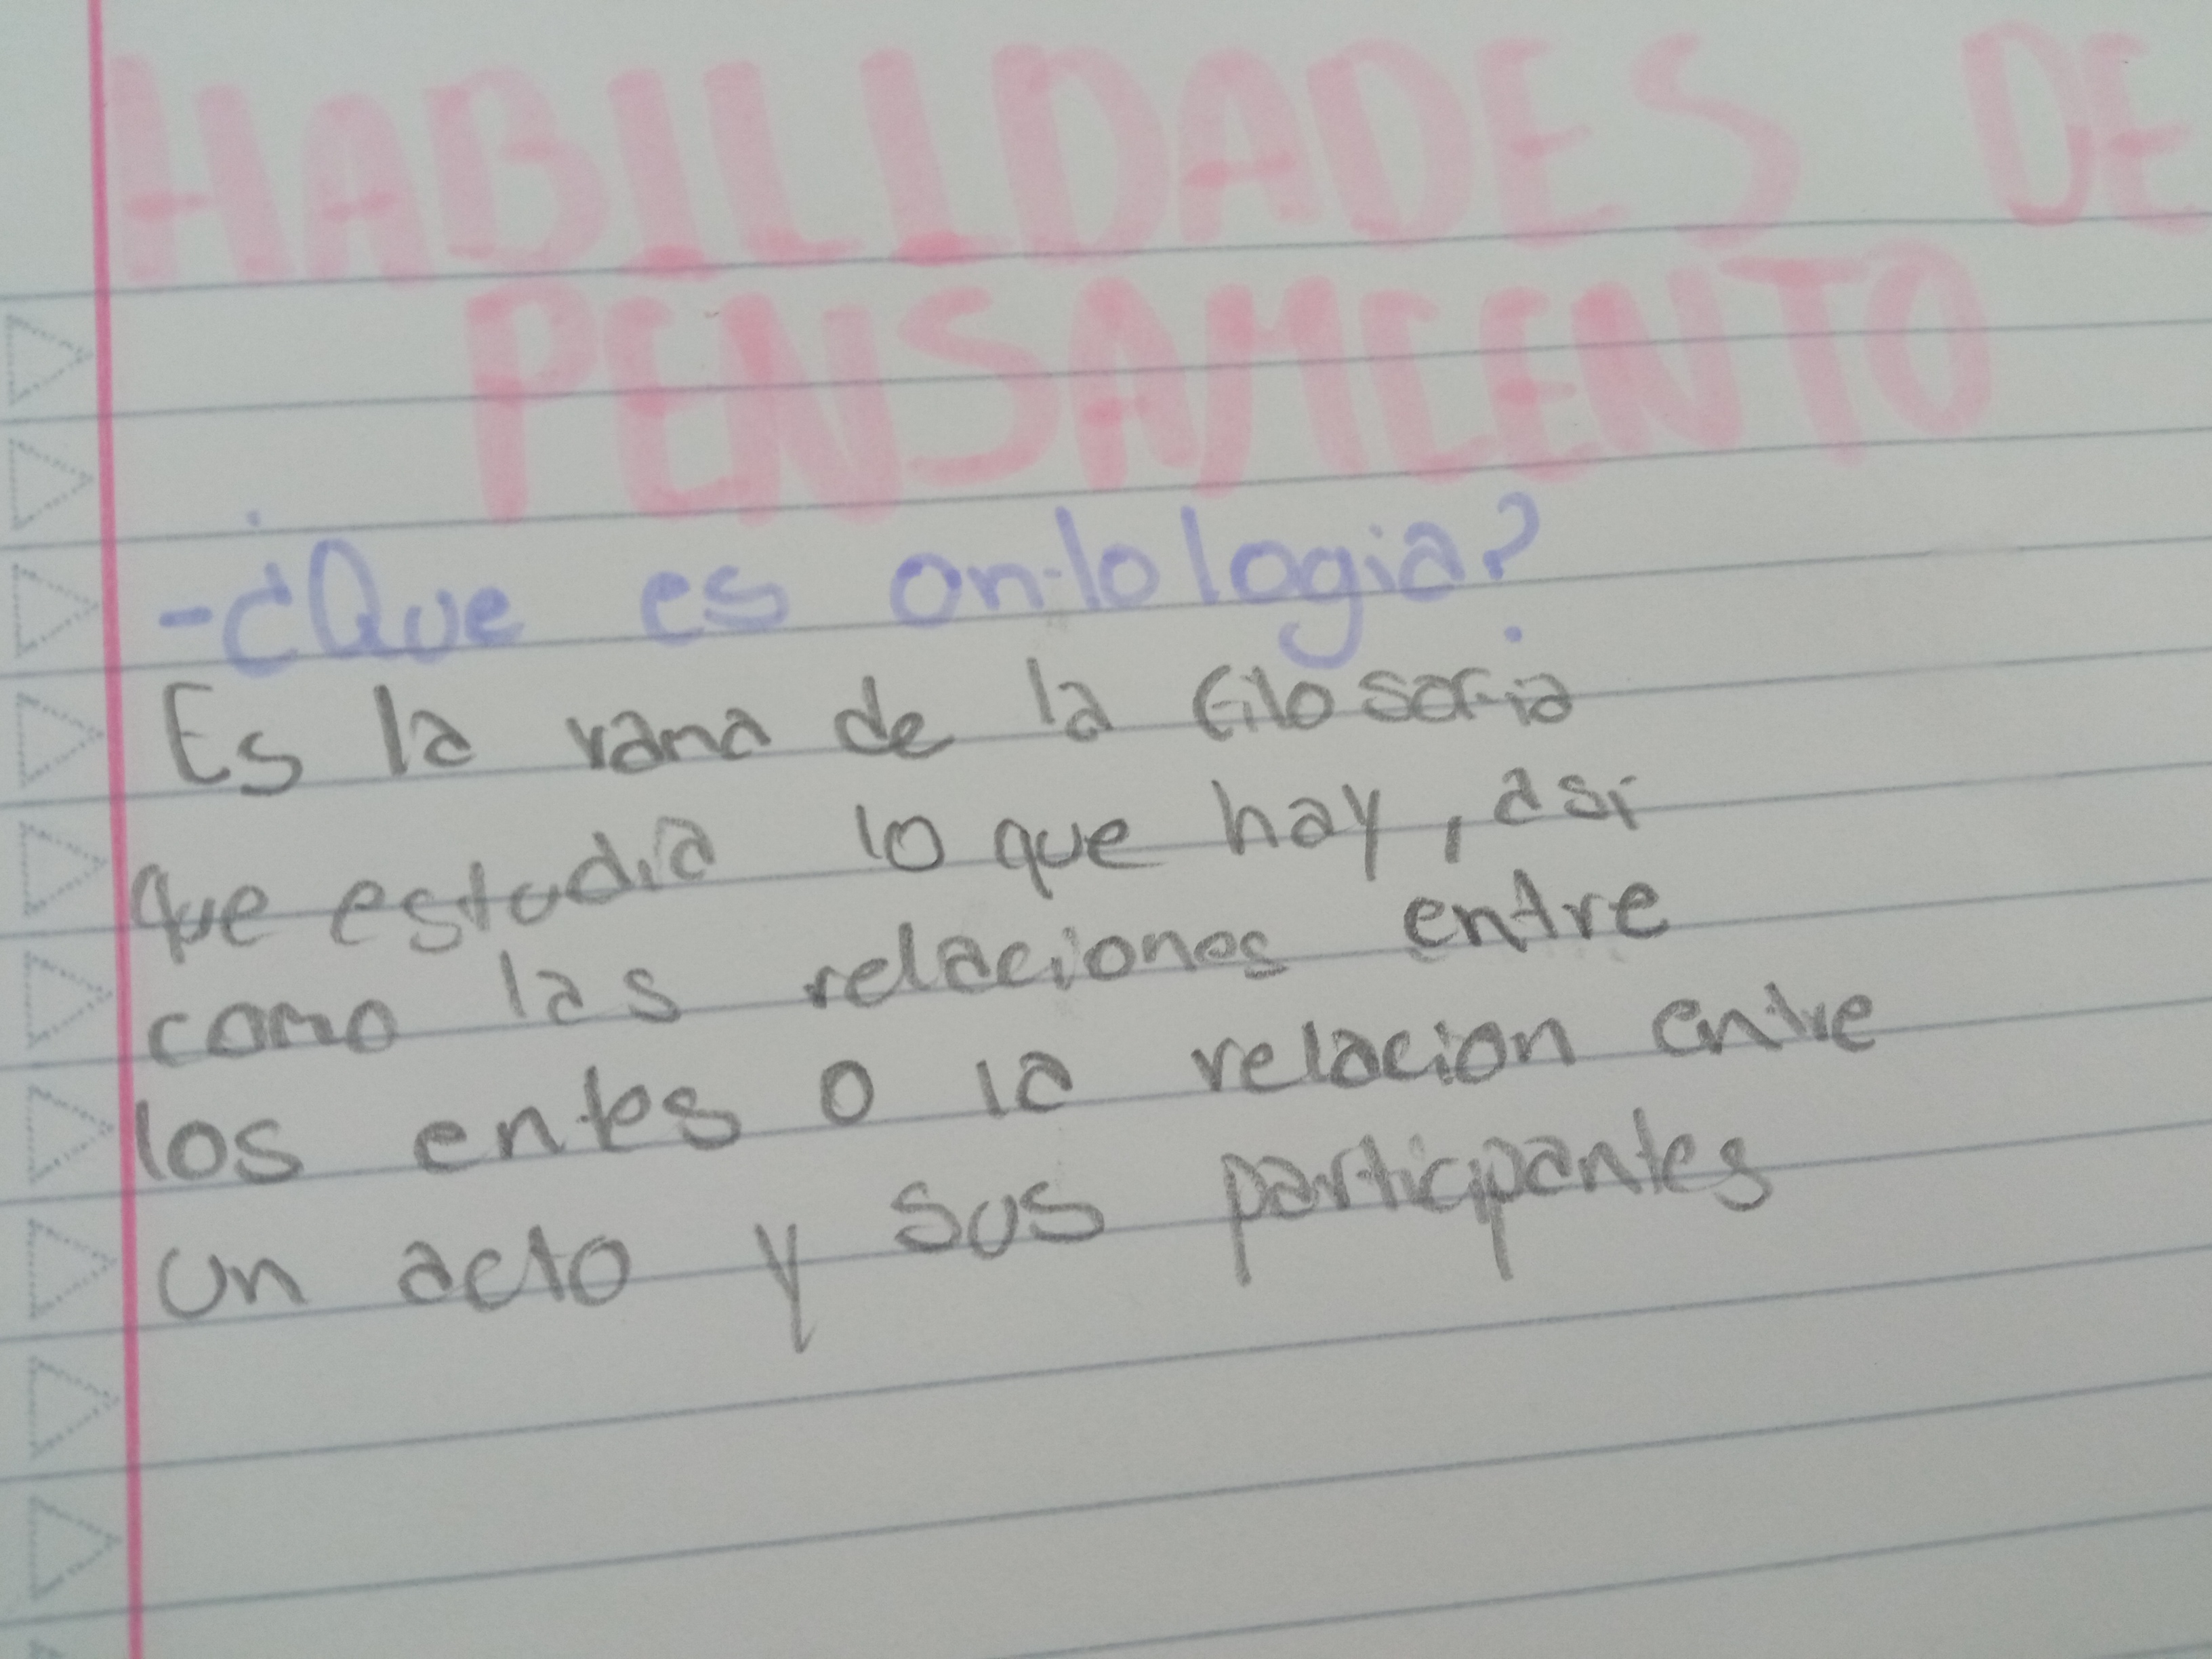 HABILIDADES DE
PENSAMIENTO
-¿Que es ontologia?
Es la rama de la filosofia
que estudia lo que hay, asi
como las relaciones entre
los entes o la relacion entre
un acto y sus participantes